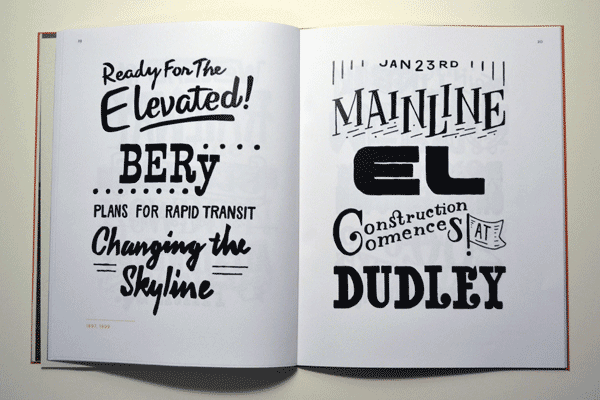 Ready For The
Elevated!
BERy
PLANS FOR RAPID TRANSIT
Changing the
Skyline
JAN 23RD
MAINLINE
EL
Construction
Commences AT
DUDLEY